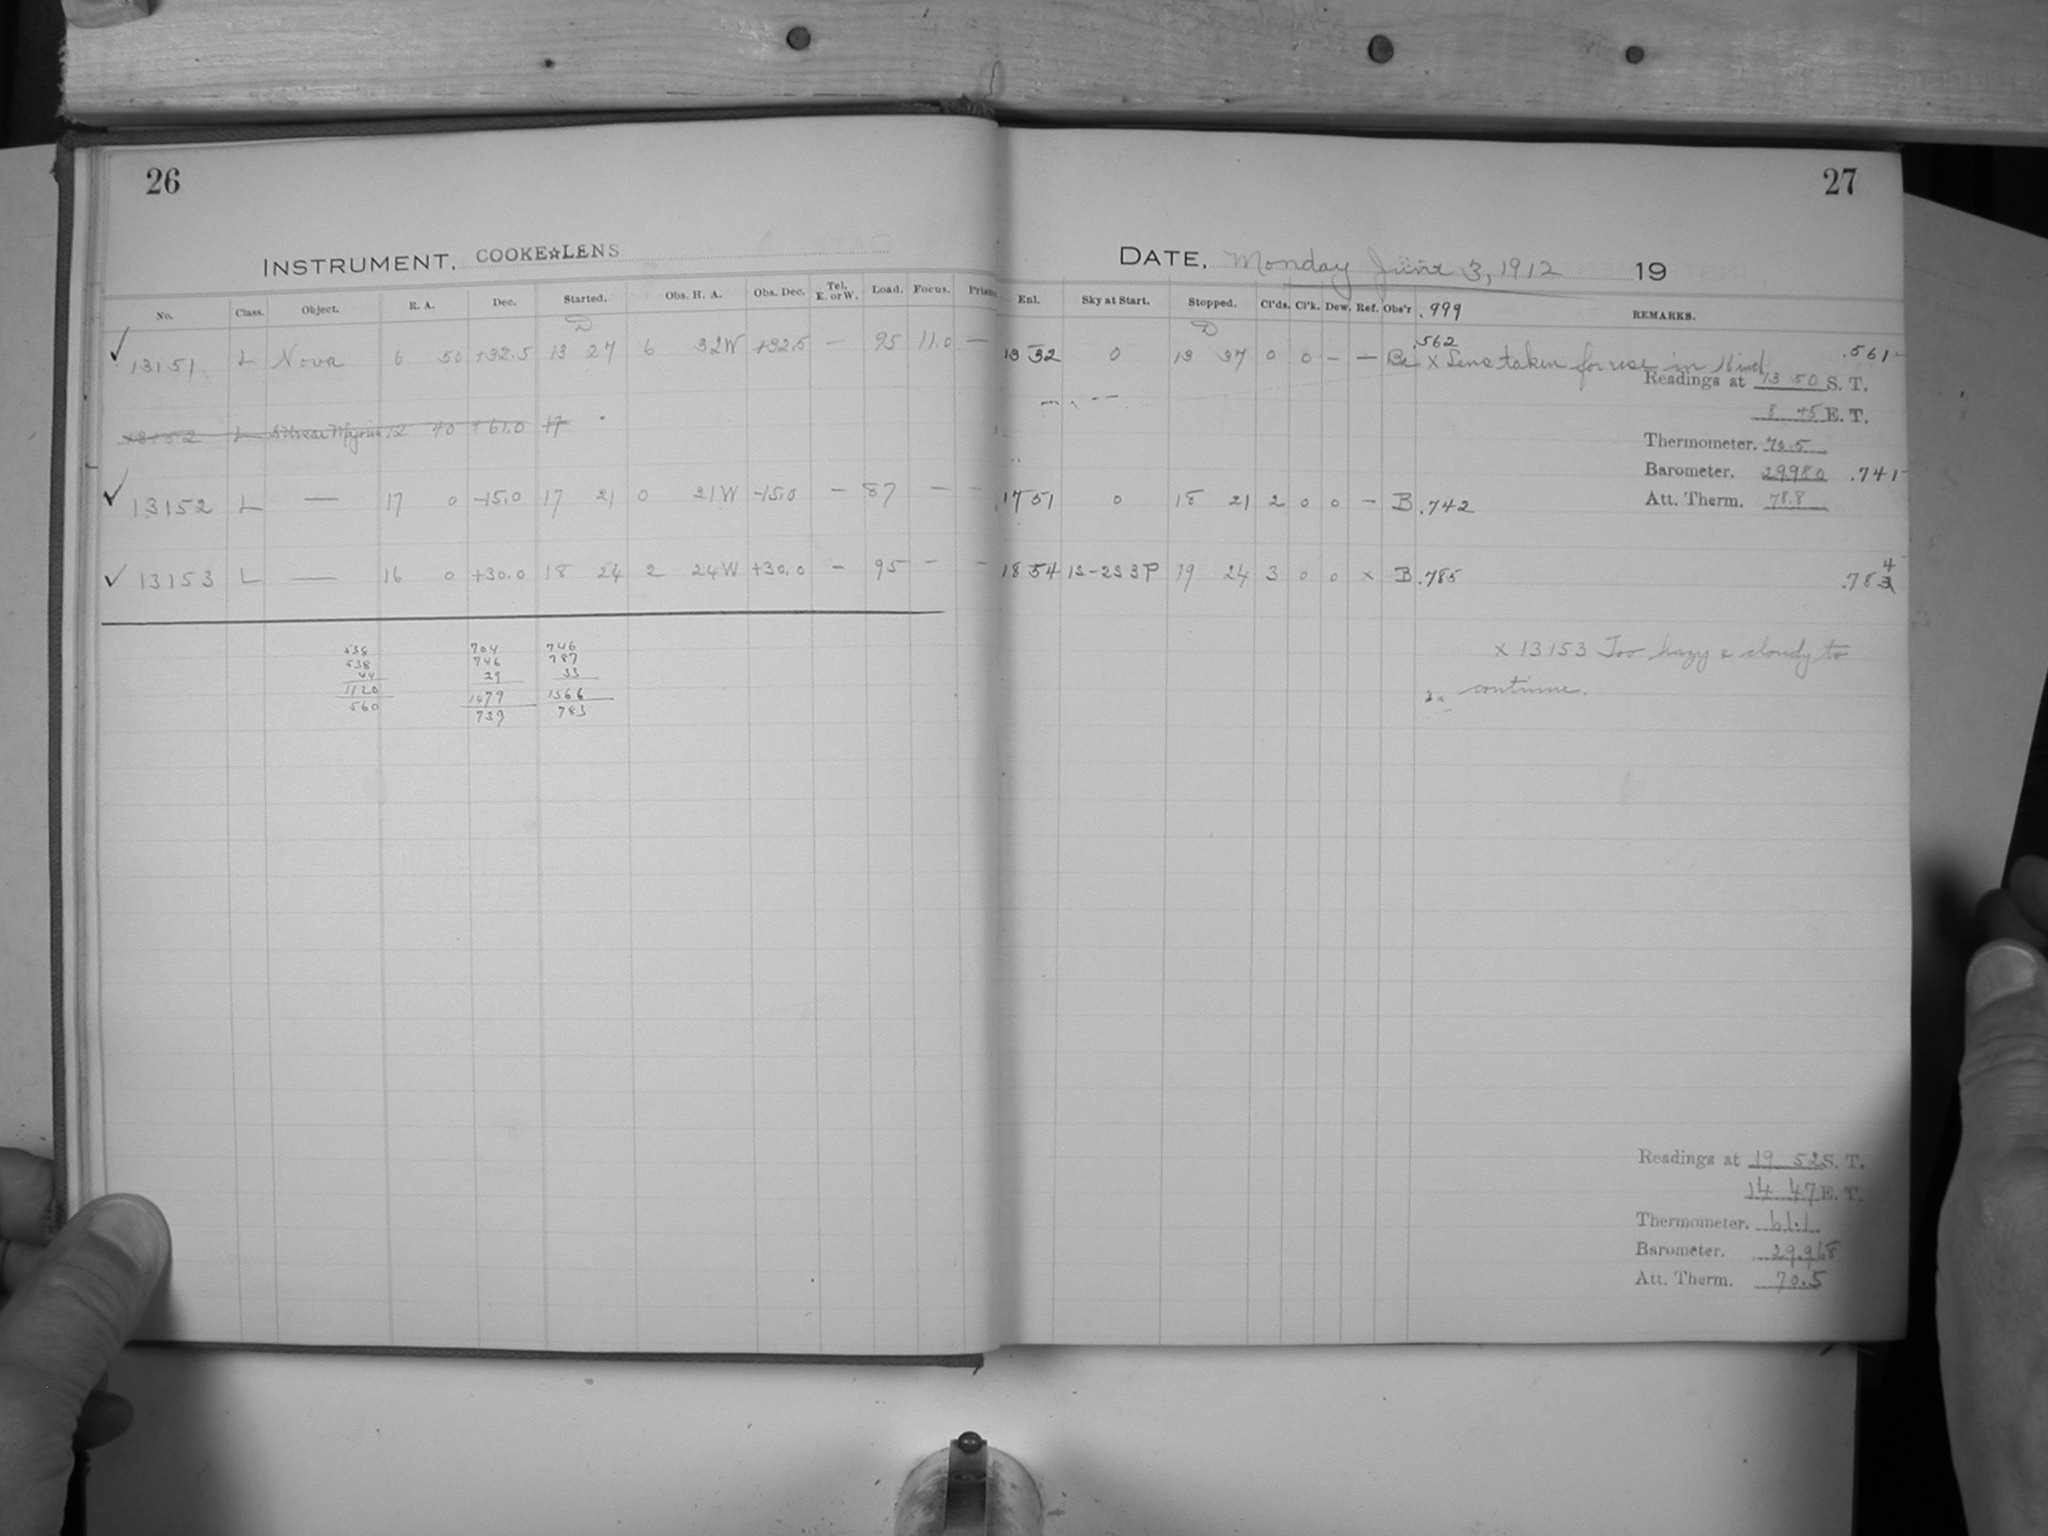 26
INSTRUMENT, COOKE☆LENS
No. Class. Object. R. A. Dec. Started. Obs. H. A. Obs. Dec. Tel. E. or W. Load. Focus. Prism
D
13151 L Nova 6 50 +32.5 13 27 6 32W +32.5 — 95 11.0 —
L S Ursae Majoris 12 40 +61.0 17
13152 L — 17 0 -15.0 17 21 0 21W -15.0 — 87 — —
13153 L — 16 0 +30.0 18 24 2 24W +30.0 — 95 — —
538 704 746
538 746 787
44 29 33
1120 1479 1566
560 739 783
27
DATE, Monday June 3, 1912 19
Enl. Sky at Start. Stopped. Cl'ds. Cl'k. Dew. Ref. Obs'r .999 REMARKS.
D .562
13 32 0 13 37 0 0 — — Be X Lens taken for use in 16 inch .561
Readings at 13 50 S. T.
8 45 E. T.
Thermometer. 70.5
Barometer. 29.980 .741
Att. Therm. 78.8
17 51 0 18 21 2 0 0 — B .742
18 54 1S-2S 3P 19 24 3 0 0 x B .785 .783 4
x 13153 Too hazy & cloudy to
continue.
Readings at 19 52 S. T.
14 47 E. T.
Thermometer. 61.1
Barometer. 29.968
Att. Therm. 70.5